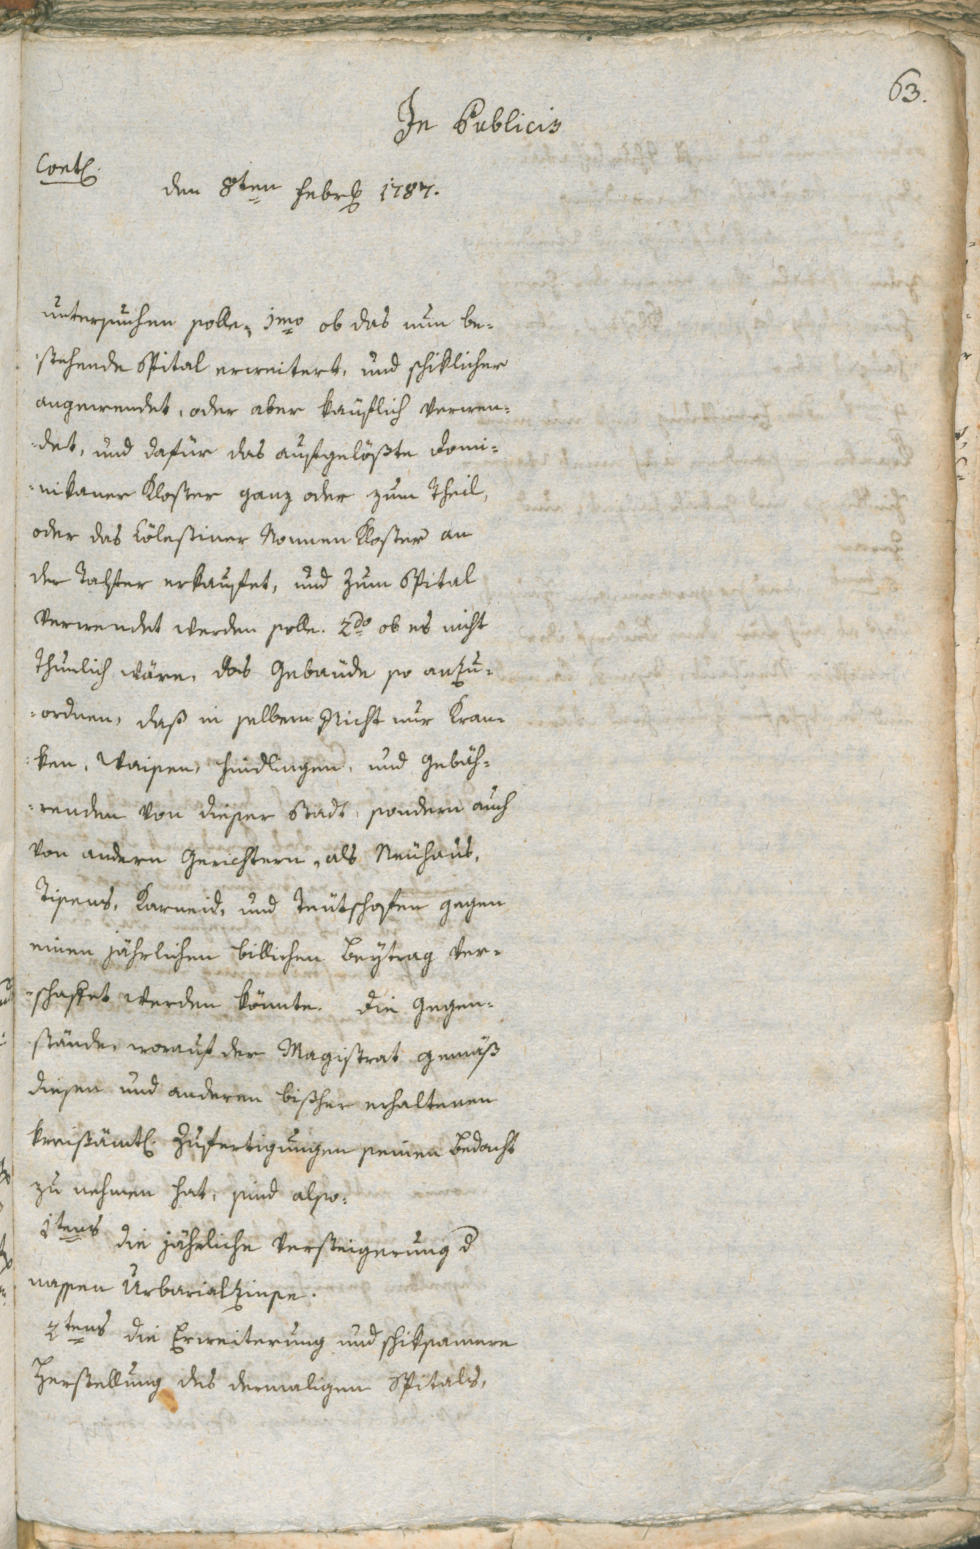 63.
In Publicis
Contl.
den 8ten Febrl 1787.
untersuchen solle, 1mo ob das nun be-
stehende Spital erweitert, und schiklicher
angewendet, oder aber käuflich verwen-
det, und dafür das aufgelößte Domi-
nikaner Kloster ganz oder zum Theil,
oder das Cölestiner Nonnen Kloster an
der Talfer erkaufet, und zum Spital
verwendet werden solle. 2do ob es nicht
thunlich wäre, das Gebäude so anzu-
ordnen, daß in selbem Nicht nur Kran-
ken, Waisen, Findlingen, und Gebäh-
renden von dieser Stadt, sondern auch
von andern Gerichtern, als Neuhaus,
Tisens, Karneid, und Teutschofen gegen
einen jährlichen billichen Beytrag ver-
schaffet werden könnte. Die Gegen-
stände, worauf der Magistrat gemäß
diesen und anderen bißher erhaltenen
kreisämtl. Zufertigungen seinen Bedacht
zu nehmen hat, sind also:
1tens die jährliche Versteigerung d
nassen Urbarialzinse.
2tens die Erweiterung und schiksamere
Herstellung des dermaligen Spitals,